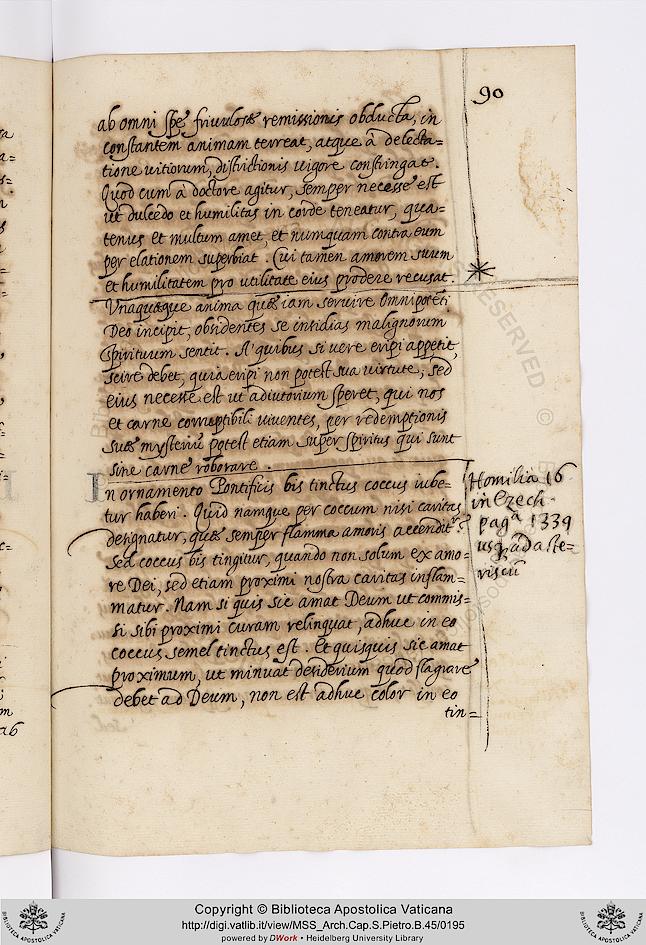 90
ab omni spę friuolosę remissionis obducta, in
constantem animam terreat, atque à delecta-
tione vitiorum, districtionis vigore constringat.
Quod cum a doctore agitur, semper necesse est
ut dulcedo et humilitas in corde teneatur, qua-
tenus et multum amet, et numquam contra eum
per elationem superbiat. Cui tamen amorem suum
et humilitatem pro utilitate eius prodere recusat.
Vnaquęque anima quę iam seruire Omnipotēti
Deo incipit, obsidentes se insidias malignorum
Spirituum sentit. A' quibus si vere eripi appetit,
scire debet, quia eripi non potest sua virtute, sed
eius necesse est ut adiutorium speret, qui nos
et carne corruptibili viuentes, per redemptionis
suę mysteriū potest etiam super spiritus qui sunt
sine carne roborare.
In ornamento Pontificis bis tinctus coccus iube-
tur haberi. Quid namque per coccum nisi caritas
designatur, quę semper flamma amoris accenditʳ?
Sed coccus bis tingitur, quando non solum ex amo-
re Dei, sed etiam proximi nostra caritas inflam-
matur. Nam si quis sic amat Deum ut commis-
si sibi proximi curam relinquat, adhuc in eo
coccus semel tinctus est. Et quisquis sic amat
proximum, ut minuat desiderium quod flagrare
debet ad Deum, non est adhuc color in eo
tin-
Homilia 16
in Ezech.
pagᵃ 1339
usq. ad aste-
riscū
Copyright © Biblioteca Apostolica Vaticana
http://digi.vatlib.it/view/MSS_Arch.Cap.S.Pietro.B.45/0195
powered by DWork • Heidelberg University Library